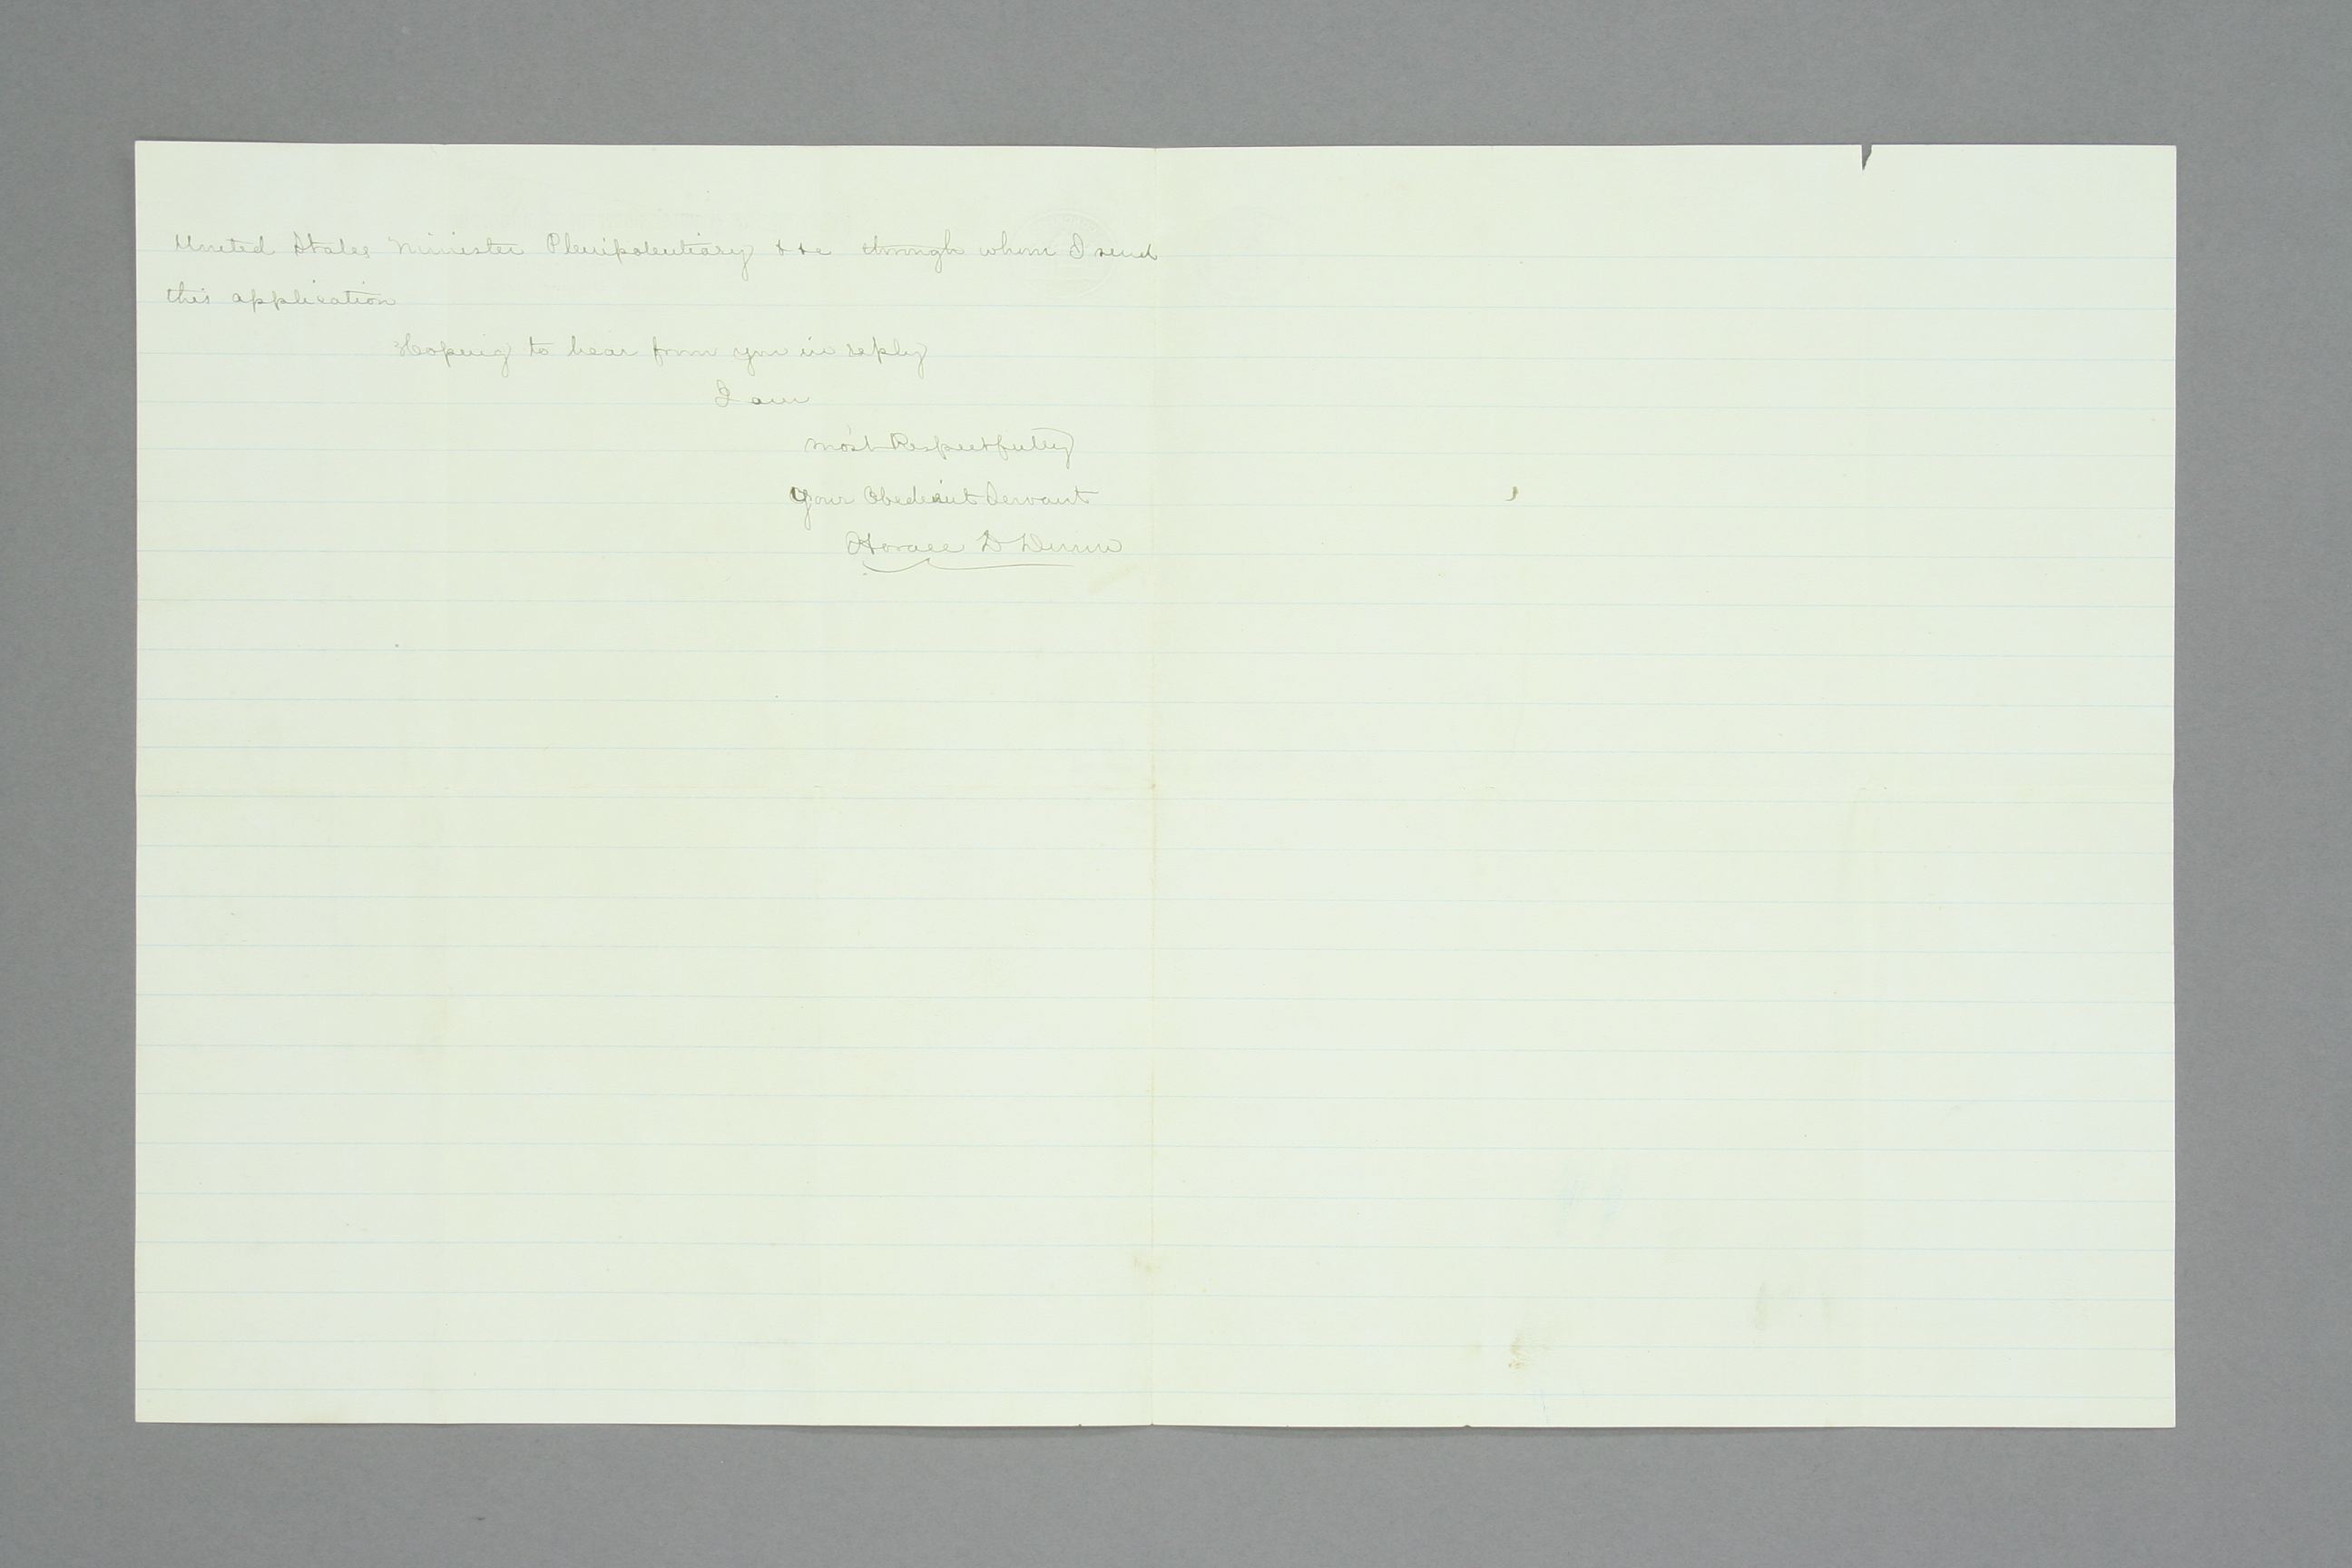 United States Minister Plenipotentiary &&c through whom I send
this application
Hoping to hear from you in reply
I am
most Respectfully
Your Obedeint Servant
Horace D Dunn